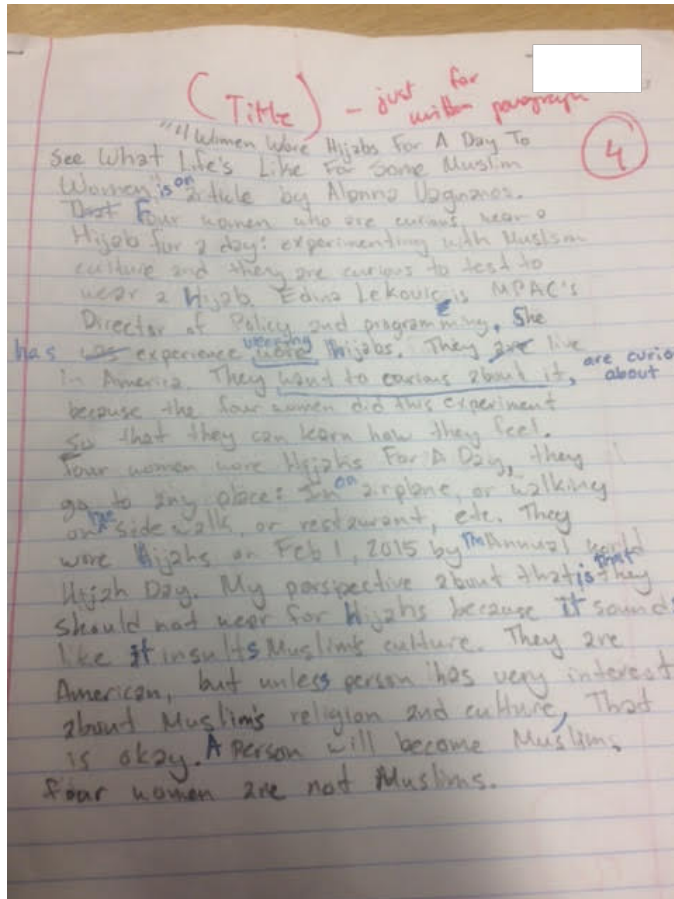 (Title) - just for
written paragraph
4
"4 Women Wore Hijabs For A Day To
See What Life's Like For Some Muslim
Women" is an article by Alanna Vagianos.
That Four women who are curious, wear a
Hijab for a day: experimenting with Muslism
culture and they are curious to test to
wear a Hijab. Edina Lekovic is MPAC's
Director of Policy and programming. She
has was experience wearing wore Hijabs. They are live
in America. They want to curious about it, are curio
about
because the four women did this experiment
So that they can learn how they feel.
Four women wore Hijabs For A Day, they
go to any place: In on airplane, or walking
on the side walk, or restaurant, etc. They
wore Hijahs on Feb 1, 2015 by The Annual World
Hijah Day. My perspective about that is that they
should not wear for Hijahs because it sound
like it insults Muslim's culture. They are
American, but unless person has very interest
about Muslim's religion and culture, That
is okay. A Person will become Muslim,
four women are not Muslims.